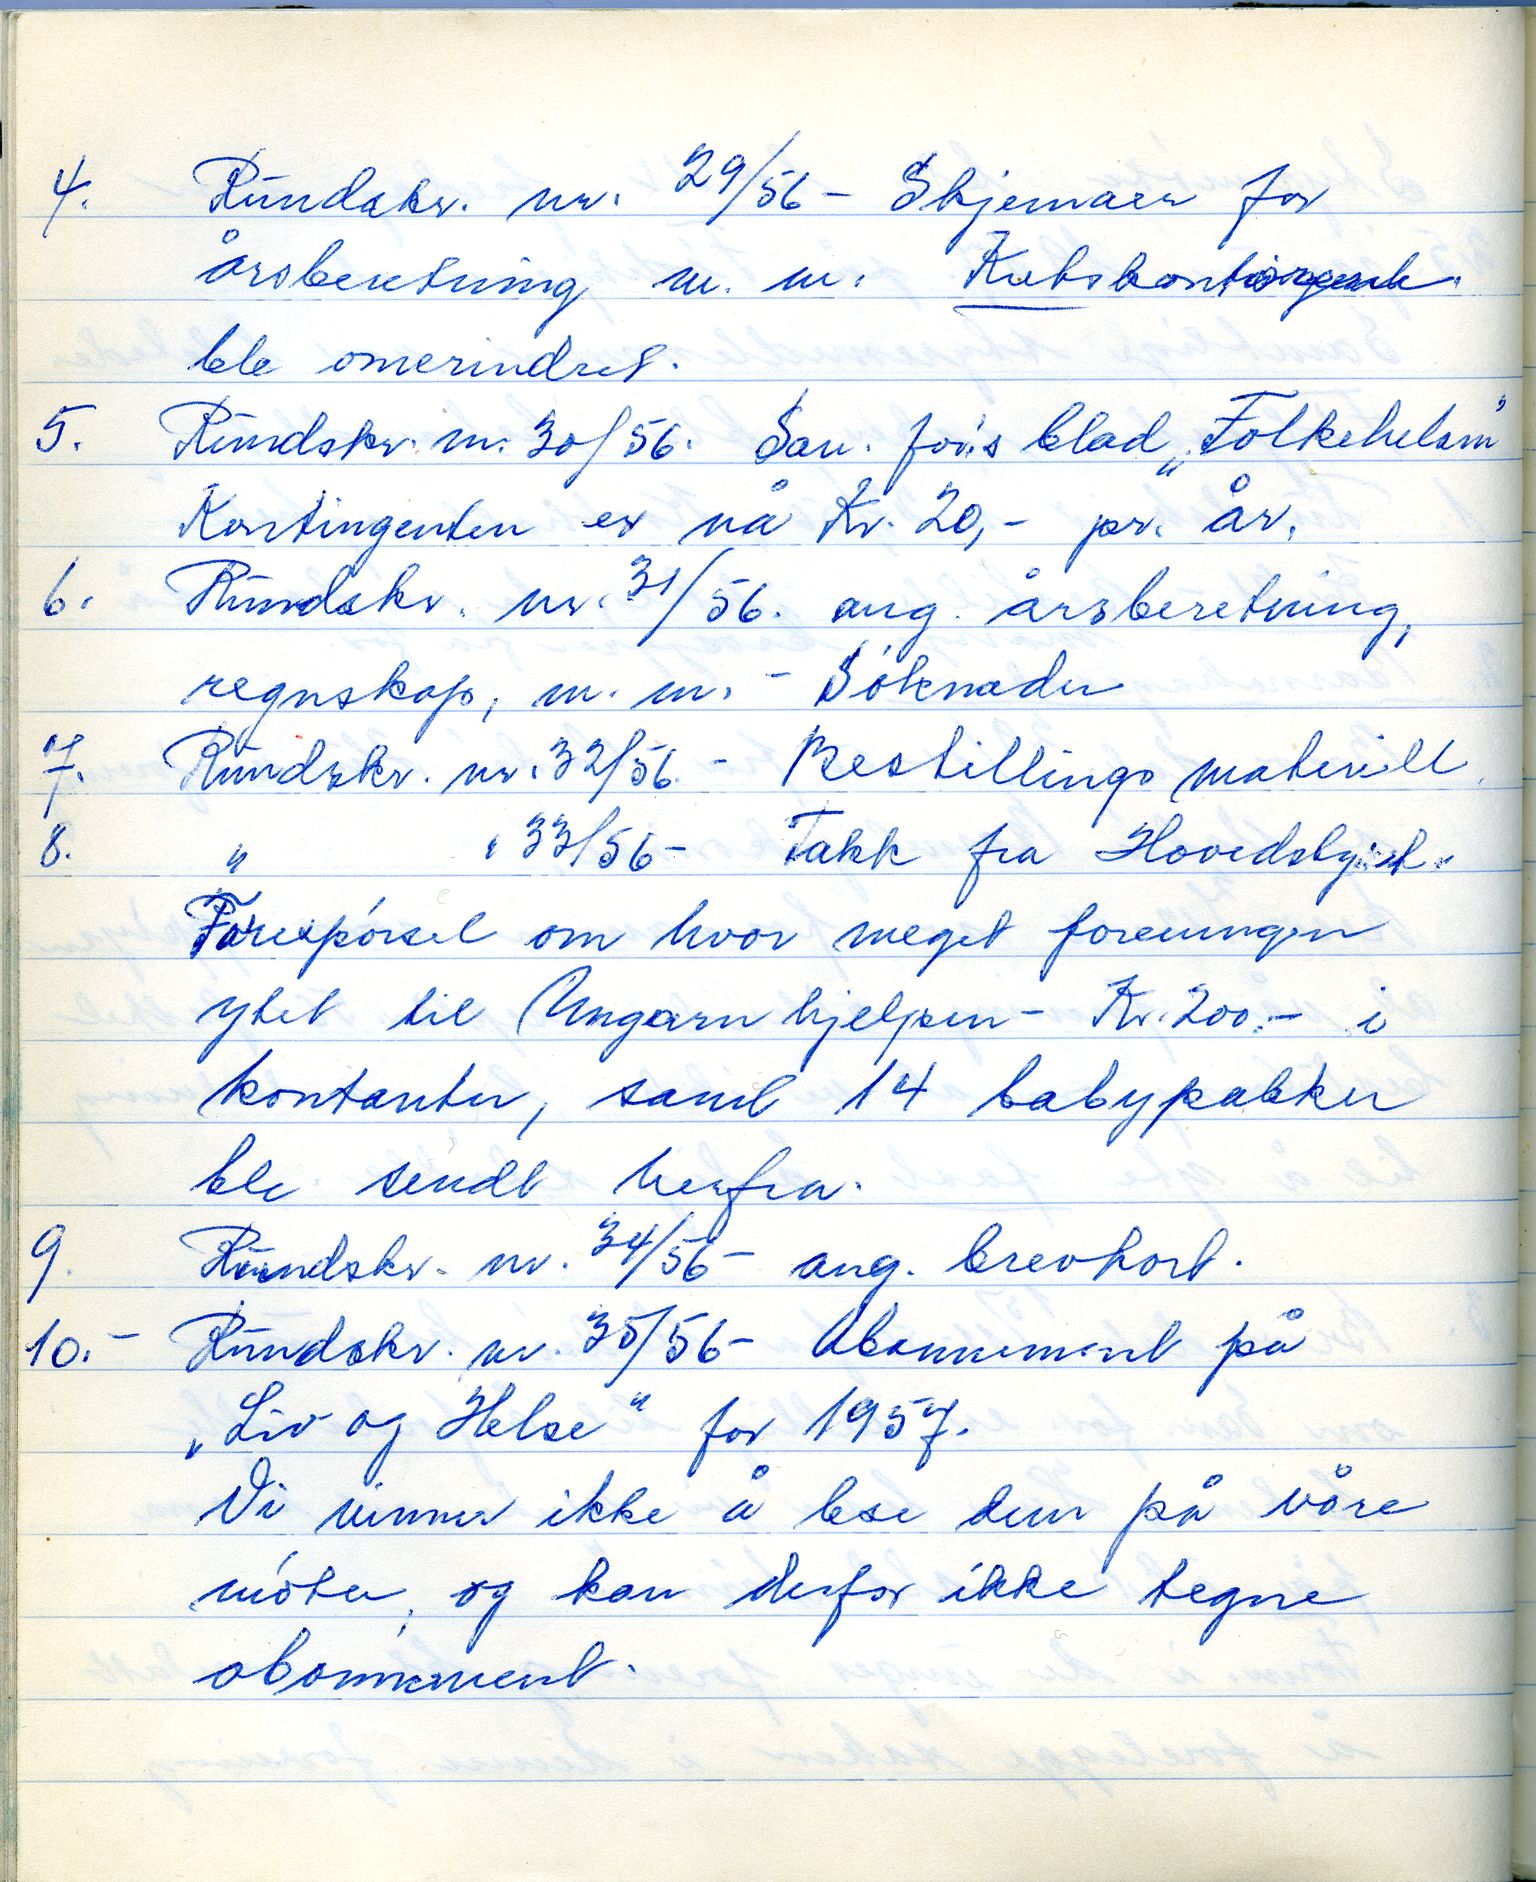 4. Rundskr. nr. 29/56 - Skjemaer for
årsberetning m. m.
ble omerindret.
5. Rundskr. nr. 30/56. San. for's blad „Folkehelsen"
Kontingenten er nå Kr. 20,- pr. år.
6. Rundskr. nr. 31/56. ang. årsberetning,
regnskap, m. m. - Söknader
7. Rundskr. nr. 32/56 - Bestillings materiell
8. " " 33/56 - Takk fra Hovedstyret.
Forespörsel om hvor meget foreningen
ytet til Ungarnhjelpen - Kr. 200.- i
kontanter, samt 14 babypakker
ble sendt herfra.
9. Rundskr. nr. 34/56 - ang. brevkort.
10. - Rundskr. nr. 35/56 - Abonnement på
„Liv og Helse" for 1957.
Vi vinner ikke å lese dem på våre
möter, og kan derfor ikke tegne
abonnement.